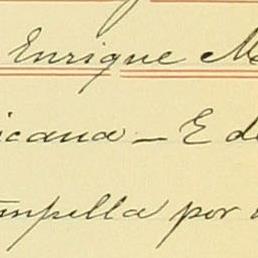 Enrique M
icana — E d
mpella por